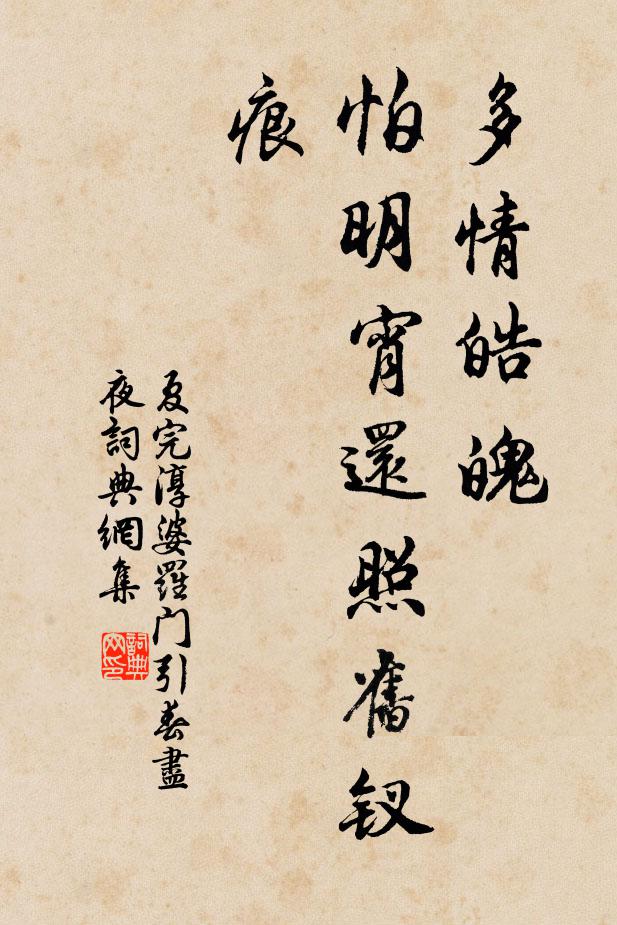 多情皓魄
怕明宵還照舊釵
痕
夏完淳婆羅門引春盡
夜詞典網集
詞典
网印